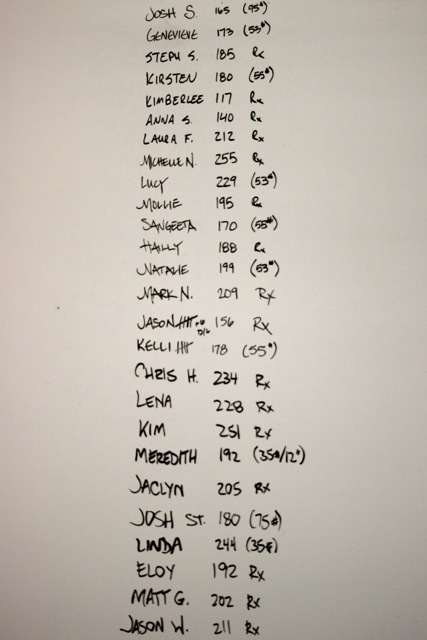 JOSH S. 165 (95#)
GENEVIEVE 173 (53#)
STEPH S. 185 Rx
KIRSTEN 180 (55#)
KIMBERLEE 117 Rx
ANNA S. 140 Rx
LAURA F. 212 Rx
MICHELLE N. 255 Rx
LUCY 229 (53#)
MOLLIE 195 Rx
SANGEETA 170 (55#)
HAILLY 188 Rx
NATALIE 199 (53#)
MARK N. 209 Rx
JASON 156 Rx
KELLI 178 (55#)
CHRIS H. 234 Rx
LENA 228 Rx
KIM 251 Rx
MEREDITH 192 (35#/12#)
JACLYN 205 Rx
JOSH ST. 180 (75#)
LINDA 244 (35#)
ELOY 192 Rx
MATT G. 202 Rx
JASON W. 211 Rx